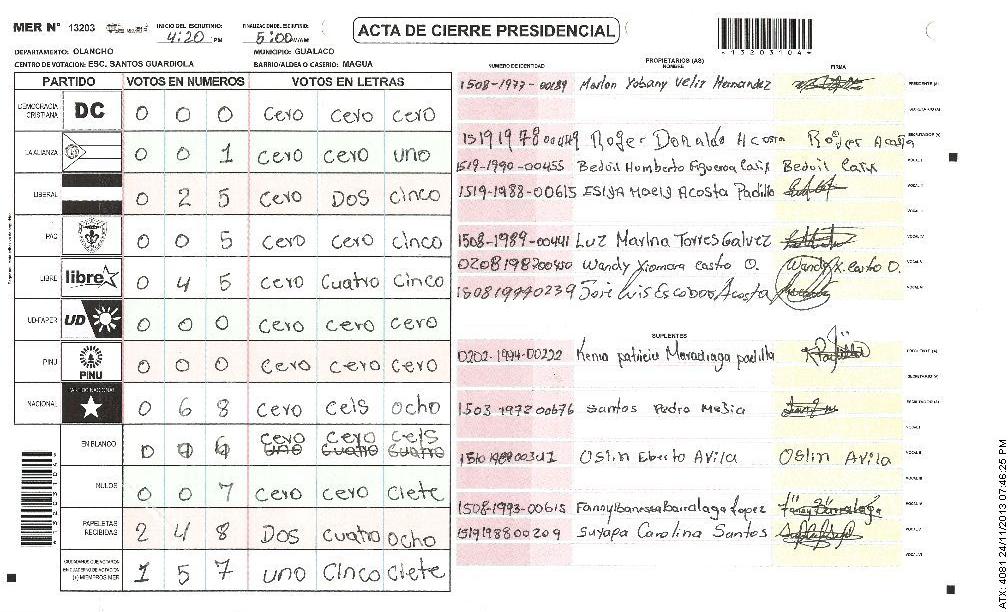 MER N° 13203 INICIO DEL ESCRUTINIO: 4:20 PM FINALIZACION DEL ESCRUTINIO: 5:00 AM ACTA DE CIERRE PRESIDENCIAL
*13203104*
DEPARTAMENTO: OLANCHO MUNICIPIO: GUALACO
CENTRO DE VOTACION: ESC. SANTOS GUARDIOLA BARRIO/ALDEA O CASERIO: MAGUA
PARTIDO VOTOS EN NUMEROS VOTOS EN LETRAS
DEMOCRACIA CRISTIANA DC 0 0 0 cero cero cero
LA ALIANZA 0 0 1 cero cero uno
LIBERAL 0 2 5 cero Dos cinco
PAC 0 0 5 cero cero cinco
LIBRE libre 0 4 5 cero cuatro cinco
UD-FAPER UD 0 0 0 cero cero cero
PINU PINU 0 0 0 cero cero cero
NACIONAL PARTIDO NACIONAL 0 6 8 cero ceis ocho
EN BLANCO 0 0 6 cero cero ceis
NULOS 0 0 7 cero cero ciete
PAPELETAS RECIBIDAS 2 4 8 Dos cuatro ocho
CIUDADANOS QUE VOTARON EN CUADERNO DE VOTACION (+) MIEMBROS MER 1 5 7 uno cinco ciete
PROPIETARIOS (AS)
NUMERO DE IDENTIDAD NOMBRE FIRMA
1508-1977-00189 Marlon Yobany Veliz Hernandez PRESIDENTE (A)
SECRETARIO (A)
1519197800449 Roger Donaldo Acosta Roger Acosta ESCRUTADOR (A)
1519-1990-00455 Bedoil Humberto Figueroa Calix Bedoil Calix VOCAL I
1519-1988-00615 Acosta Padilla VOCAL II
1508-1989-00441 Luz Marina Torres Galvez VOCAL IV
0208198200450 Wandy Xiomara castro O. Wandy X. Castro O. VOCAL V
1808199400239 José Luis Escobar Acosta VOCAL VI
SUPLENTES
0202-1994-00222 Kenia patricia Maradiaga padilla PRESIDENTE (A)
SECRETARIO (A)
1503 1972 00676 Santos Pedro Mejia ESCRUTADOR (A)
VOCAL I
Oslin Eberto Avila Oslin Avila VOCAL II
VOCAL III
1508-1993-00615 Fanny Banessa Barralaga Lopez Fanny Barralaga VOCAL IV
1519198800209 Suyapa Carolina Santos VOCAL V
VOCAL VI
ATX: 4081 24/11/2013 07:46:25 PM